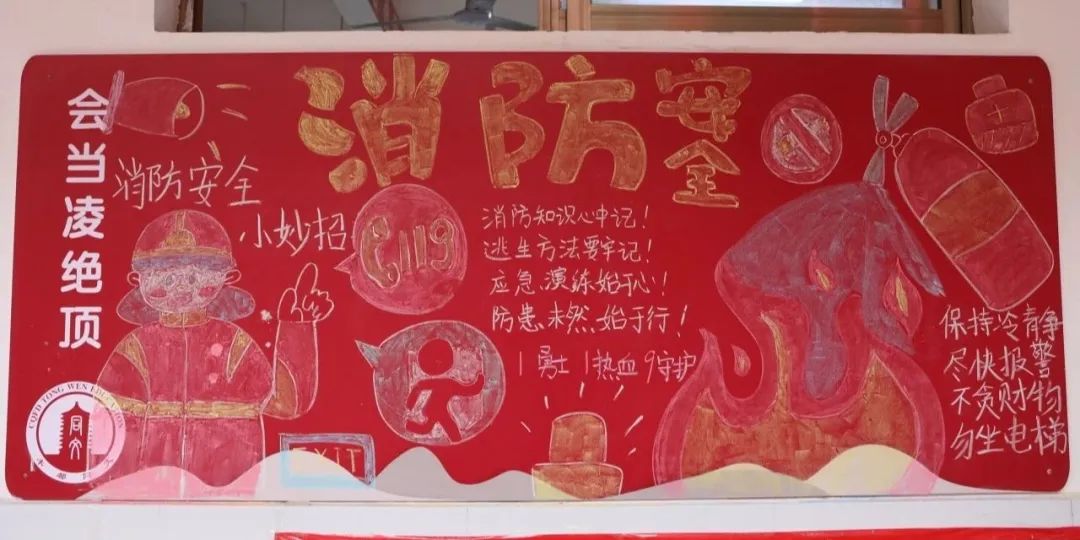 会当凌绝顶
消防安全
消防安全
小妙招
119
消防知识心中记!
逃生方法要牢记!
应急演练始于心!
防患未然始于行!
1勇士 1热血 9守护
保持冷静
尽快报警
不贪财物
勿坐电梯
EXIT
同文